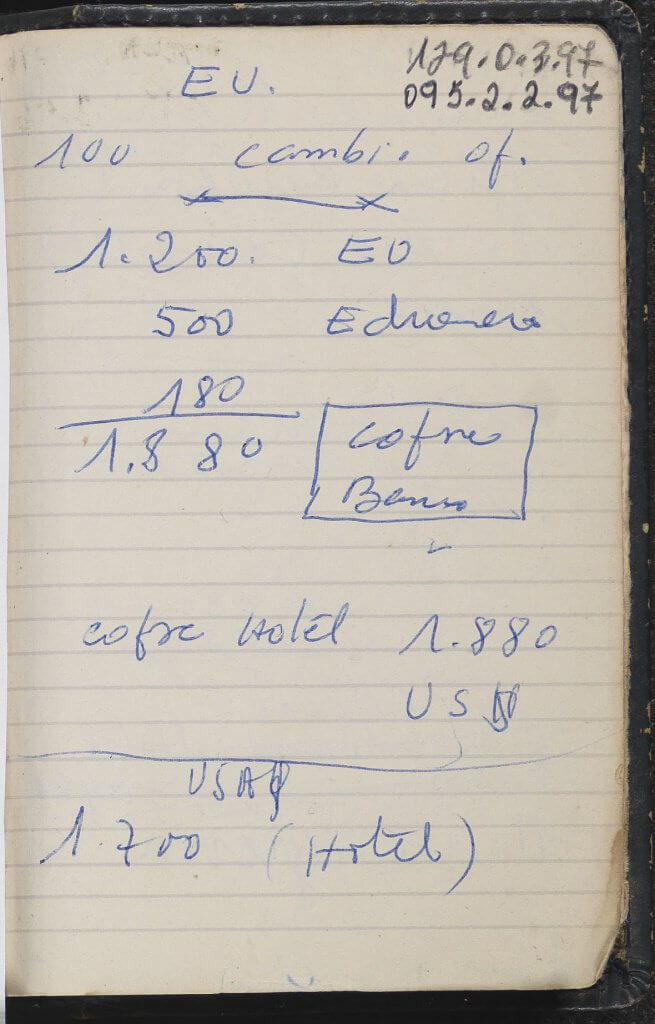 129.0.3.97
095.2.2.97
EU.
100 cambi. of.
1.200. EU
500
180
1.880
cofre
Banco
cofre Hotel 1.880
US
USA
1.700 (Hotel)